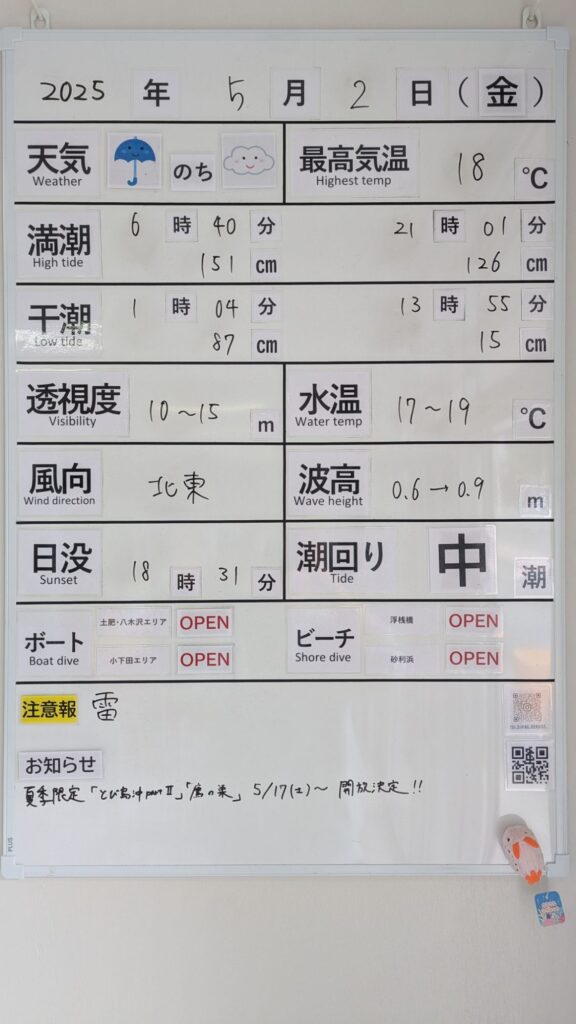 2025 年 5 月 2 日 (金)
天気 のち 最高気温 18 ℃
Weather Highest temp
満潮 6 時 40 分 21 時 01 分
High tide 151 cm 126 cm
干潮 1 時 04 分 13 時 55 分
Low tide 87 cm 15 cm
透視度 10～15 m 水温 17～19 ℃
Visibility Water temp
風向 北東 波高 0.6→0.9 m
Wind direction Wave height
日没 18 時 31 分 潮回り 中 潮
Sunset Tide
ボート 土肥・八木沢エリア OPEN ビーチ 浮桟橋 OPEN
Boat dive 小下田エリア OPEN Shore dive 砂利浜 OPEN
注意報 雷
お知らせ
夏季限定「とび島沖partⅡ」「鷹の巣」 5/17(土)～ 開放決定!!
PLUS